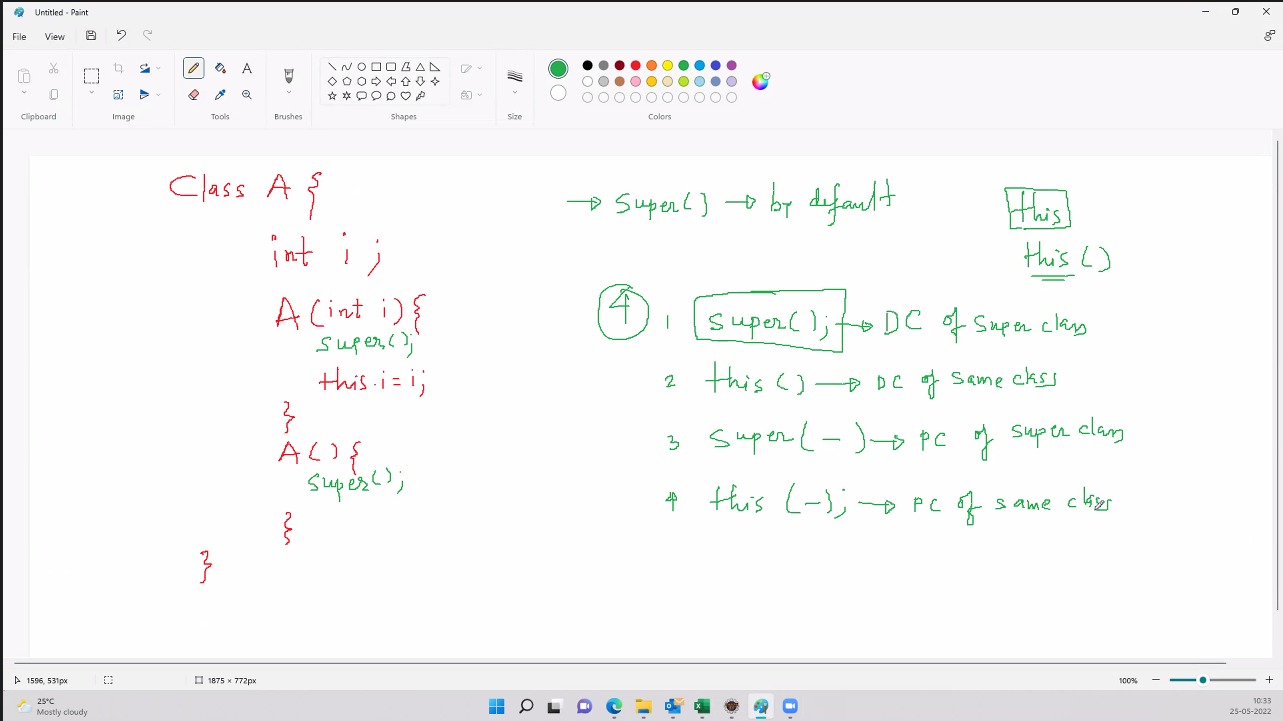 Untitled - Paint
File View
Clipboard Image Tools Brushes Shapes Size Colors
Class A {
int i ;
A (int i) {
super();
this.i = i;
}
A () {
super();
}
}
→ Super() → by default
this
this ()
4
1 super(); → DC of Super class
2 this () → DC of same class
3 Super ( – ) → PC of super class
4 this (–); → PC of same class
1596, 531px 1875 × 772px 100%
25°C
Mostly cloudy
10:33
25-05-2022